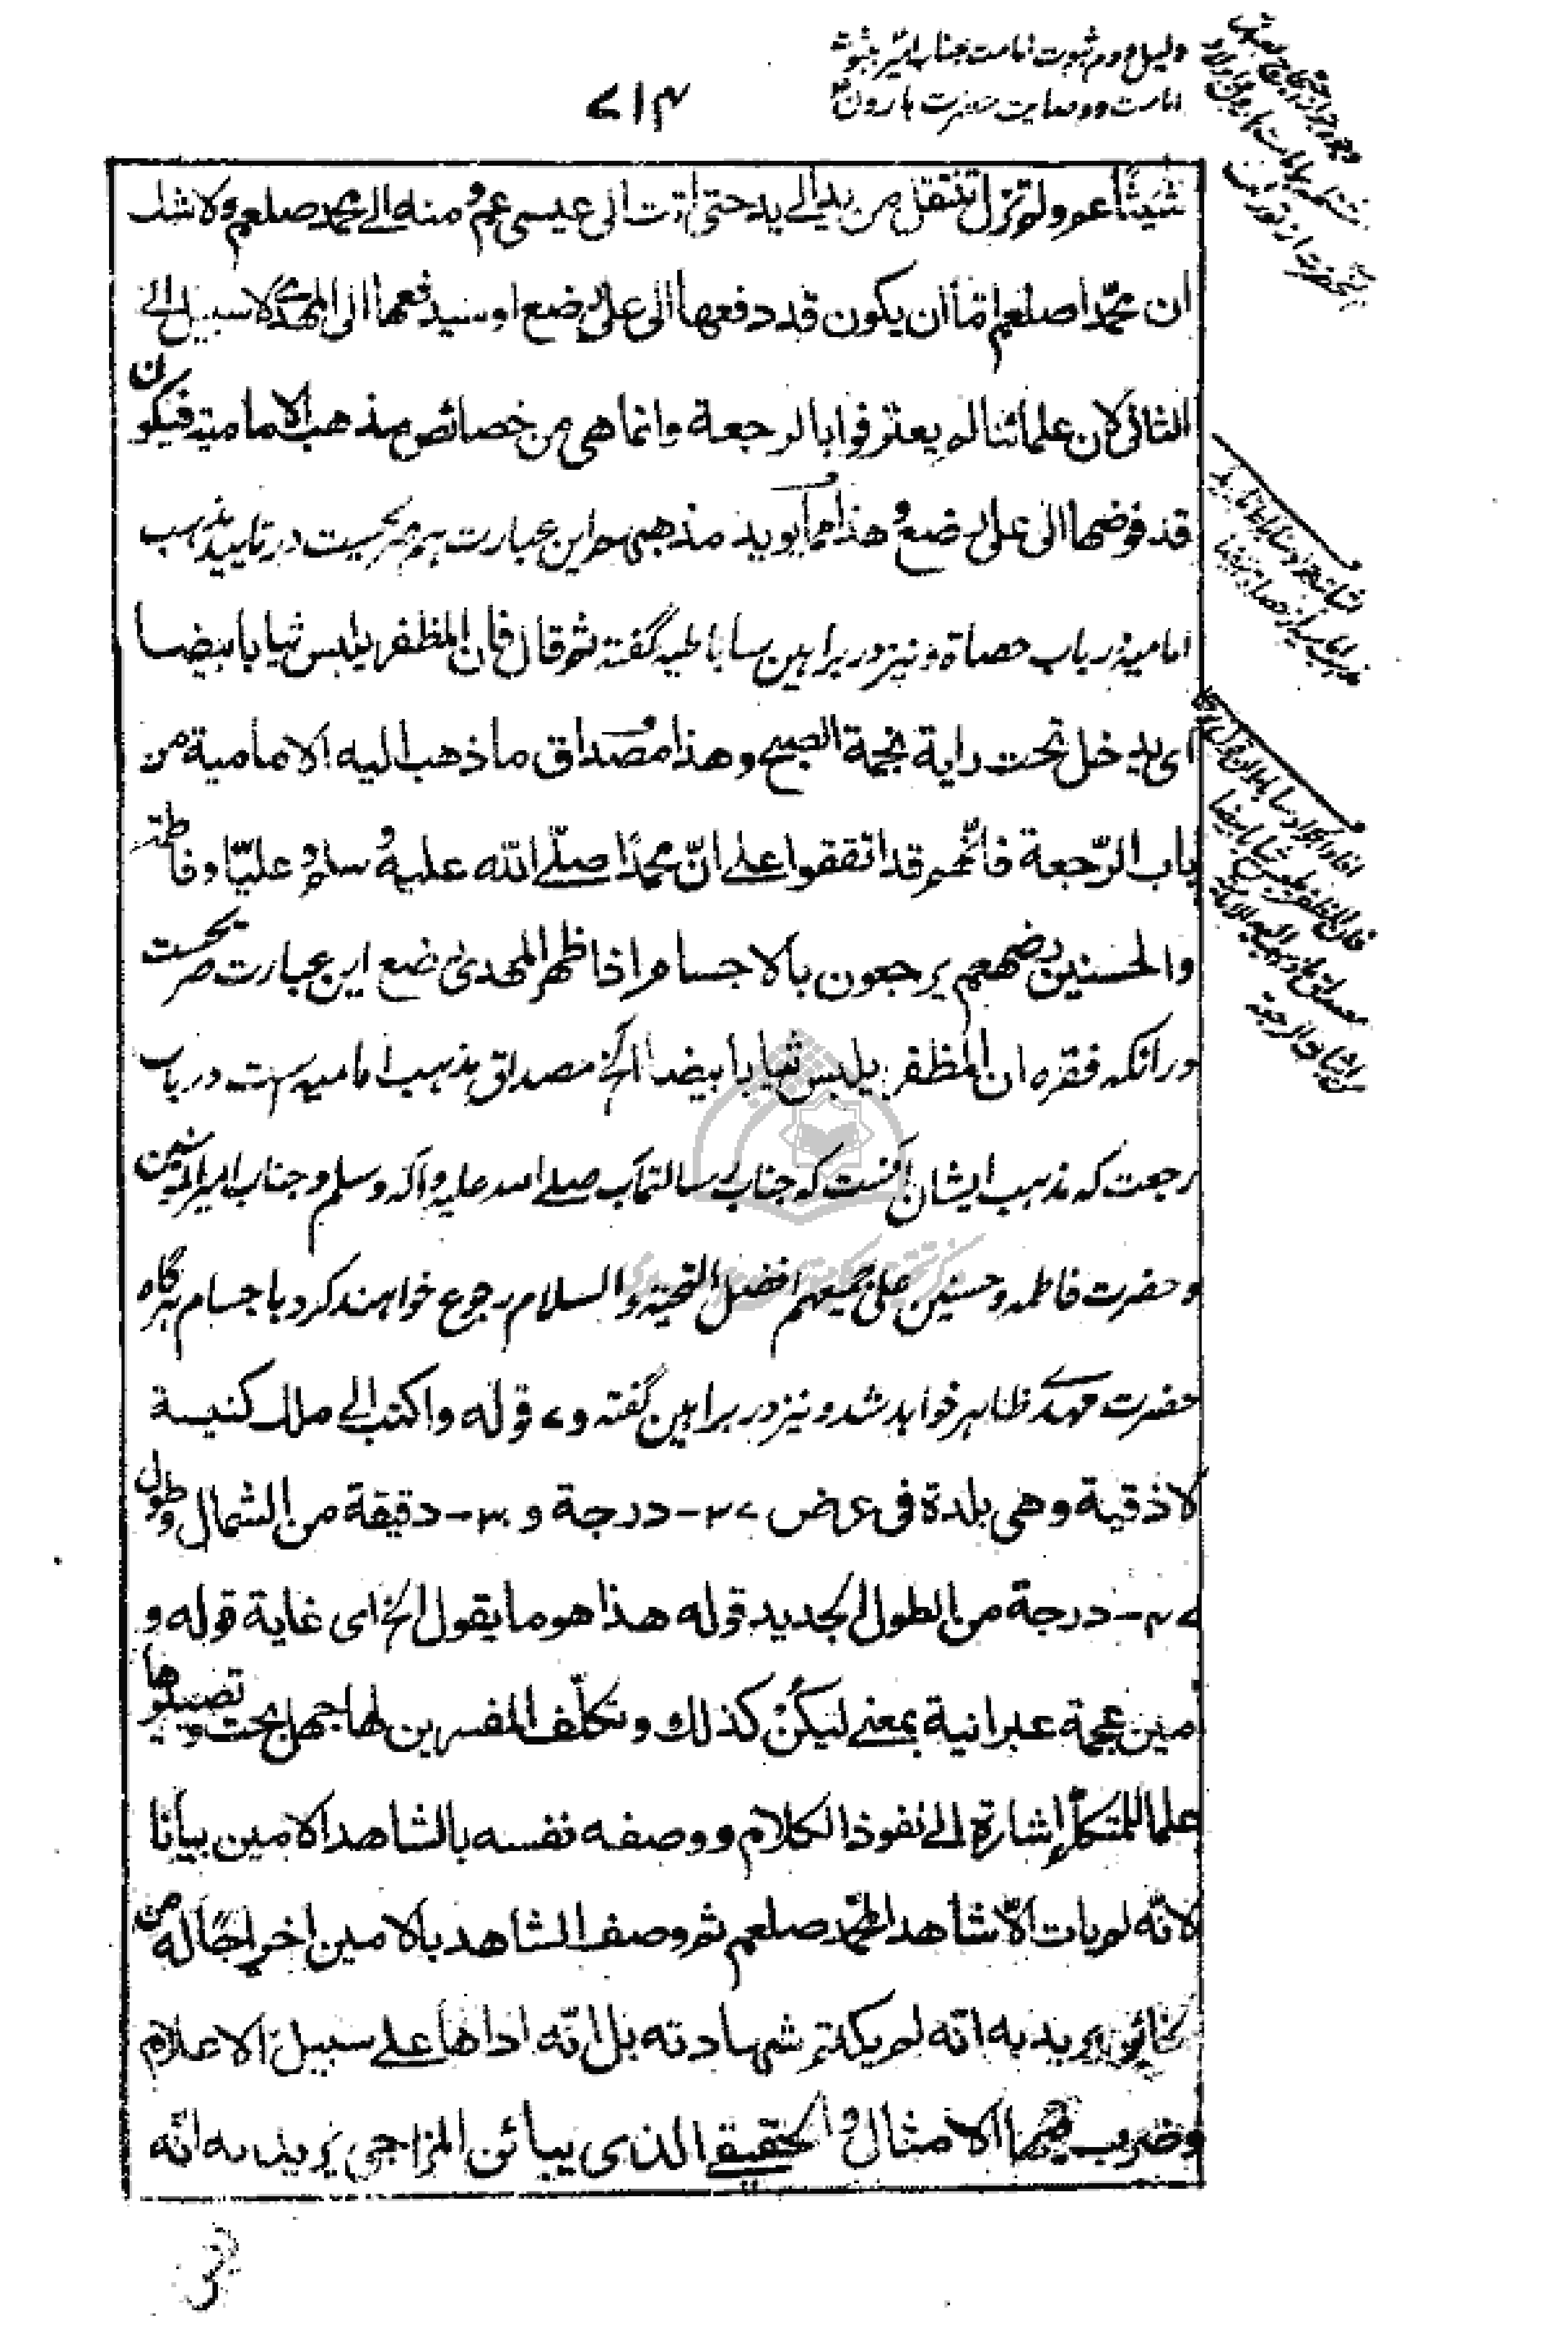 دلیل دوم ثبوت امامت جناب امیر بثبوت
امامت و وصایت حضرت هارون
۷۱۴
شیثا عم ولم تزل تنتقل من ید الی ید حتی ادت الی عیسی عم و منه الی محمد صلعم ولا شك
ان محمدا صلعم اما أن یکون قد دفعها الی علی رضع او سیدفعها الی المهدی لا سبیل الی
الثانی لان علمائنا لم یعترفوا بالرجعة وانما هی من خصائص مذهب الامامیة فیکون
قد فوضها الی علی رضع و هذا مما یوید مذهبهم و این عبارت هم صریحست در تایید مذهب
امامیه در باب حصاة و نیز در براهین ساباطیه گفته ثم قال فان المظفر یلبس ثیابا بیضا
ای یدخل تحت رایة نجمة الصبح وهذا مصداق ما ذهب الیه الامامیة من
باب الرّجعة فانّهم قد اتفقوا علی انّ محمدًا صلّی الله علیه و سلم و علیّا و فاطمة
والحسنین رضعهم یرجعون بالاجسام اذا ظهر المهدی رضع این عبارت صریحست
در آنکه فقره ان المظفر یلبس ثیابا بیضا الخ مصداق مذهب امامیه است در باب
رجعت که مذهب ایشان آنست که جناب رسالتمآب صلی الله علیه و آله و سلم و جناب امیر المؤمنین
و حضرت فاطمه و حسنین علی جمیعهم افضل التحیة و السلام رجوع خواهند کرد با جسام هرگاه
حضرت مهدی ظاهر خواهد شد و نیز در براهین گفته و ۷ قوله واکتب الی ملك کنیسة
لاذقیة وهی بلدة فی عرض ۳۷- درجة و ۳۰- دقیقة من الشمال وطول
۴۷- درجة من الطول الجدید قوله هذا هو ما یقول الخ ای غایة قوله و
امین عجمة عبرانیة بمعنی لیکن کذلك وتکلّف المفسرین لها جهل بحت وتصییرها
علما للمتکلم إشارة الی نفوذ الکلام ووصفه نفسه بالشاهد الامین بیانا
لانّه لم یات الاّ شاهدا لمحمد صلعم ثم وصف الشاهد بالامین اخراجًا له من
الخائن یرید به انّه لم یکتم شهادته بل انّه اداها علی سبیل الاعلام
وضرب فیها الامثال والحقیقی الذی یبائن المزاجی یرید به انّه